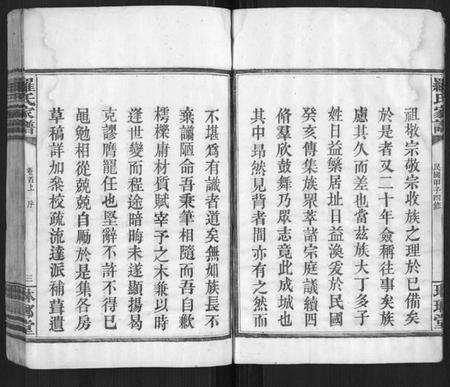 羅氏家譜
民國甲子四修
祖敬宗敬宗收族之理於已備矣
於是者又二十年僉稱往事矣族
慮其久而差也當茲族大丁多子
姓日益縶居址日益渙爰於民國
癸亥傳集族眾萃諸宗庭議續四
脩羣欣鼓舞乃眾志竟此成城也
其中昂然見背者間亦有之然而
不堪爲有識者道矣無如族長不
棄讜陋命吾秉筆相隨而吾自歉
樗櫟庸材質賦宰予之木兼以時
逢世變而程途暗晦未遂顯揚曷
克謬膺寵任也堅辭不許不得已
黽勉相從兢兢自勵於是集各房
草稿詳加叅校疏流達派補葺遺
羅氏家譜
卷首上 序
三
琳瑯堂